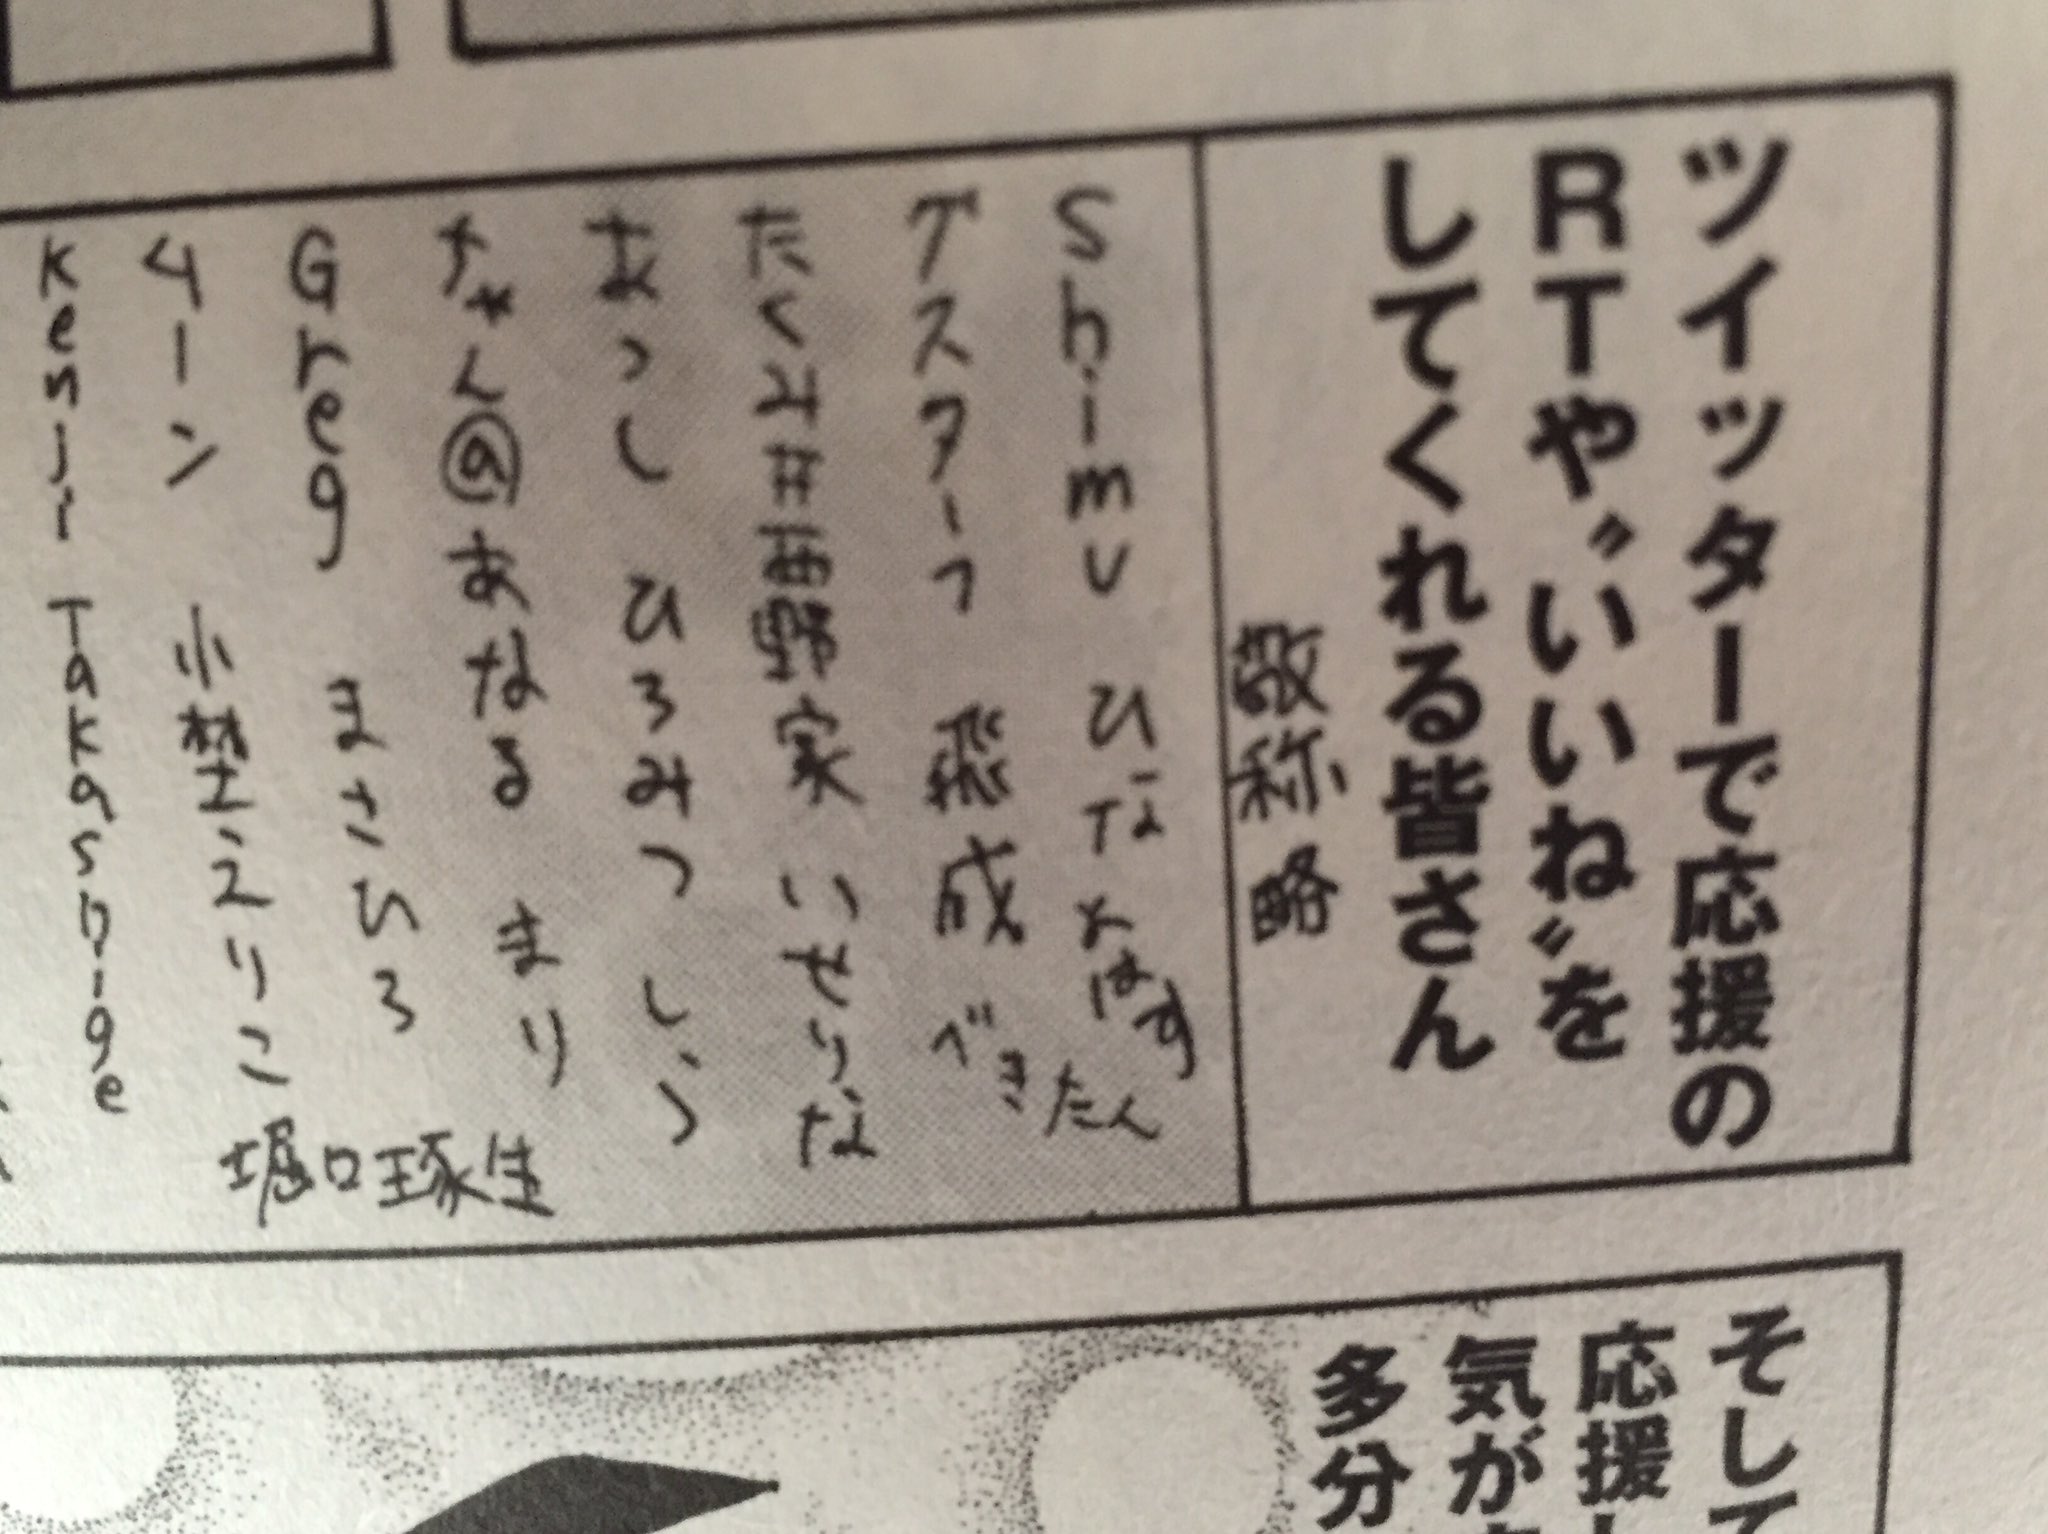 ツイッターで応援の
RTや〝いいね〟を
してくれる皆さん
敬称略
Shimu ひな
たん
グスターフ 飛成 べき
たくみ#西野家 いせりな
あつし ひろみつ しょう
チャん@あなる まり
Greg まさひろ
堀口琢生
ムーン 小埜えりこ
Kenji Takashige
そして
応援し
気が
多分